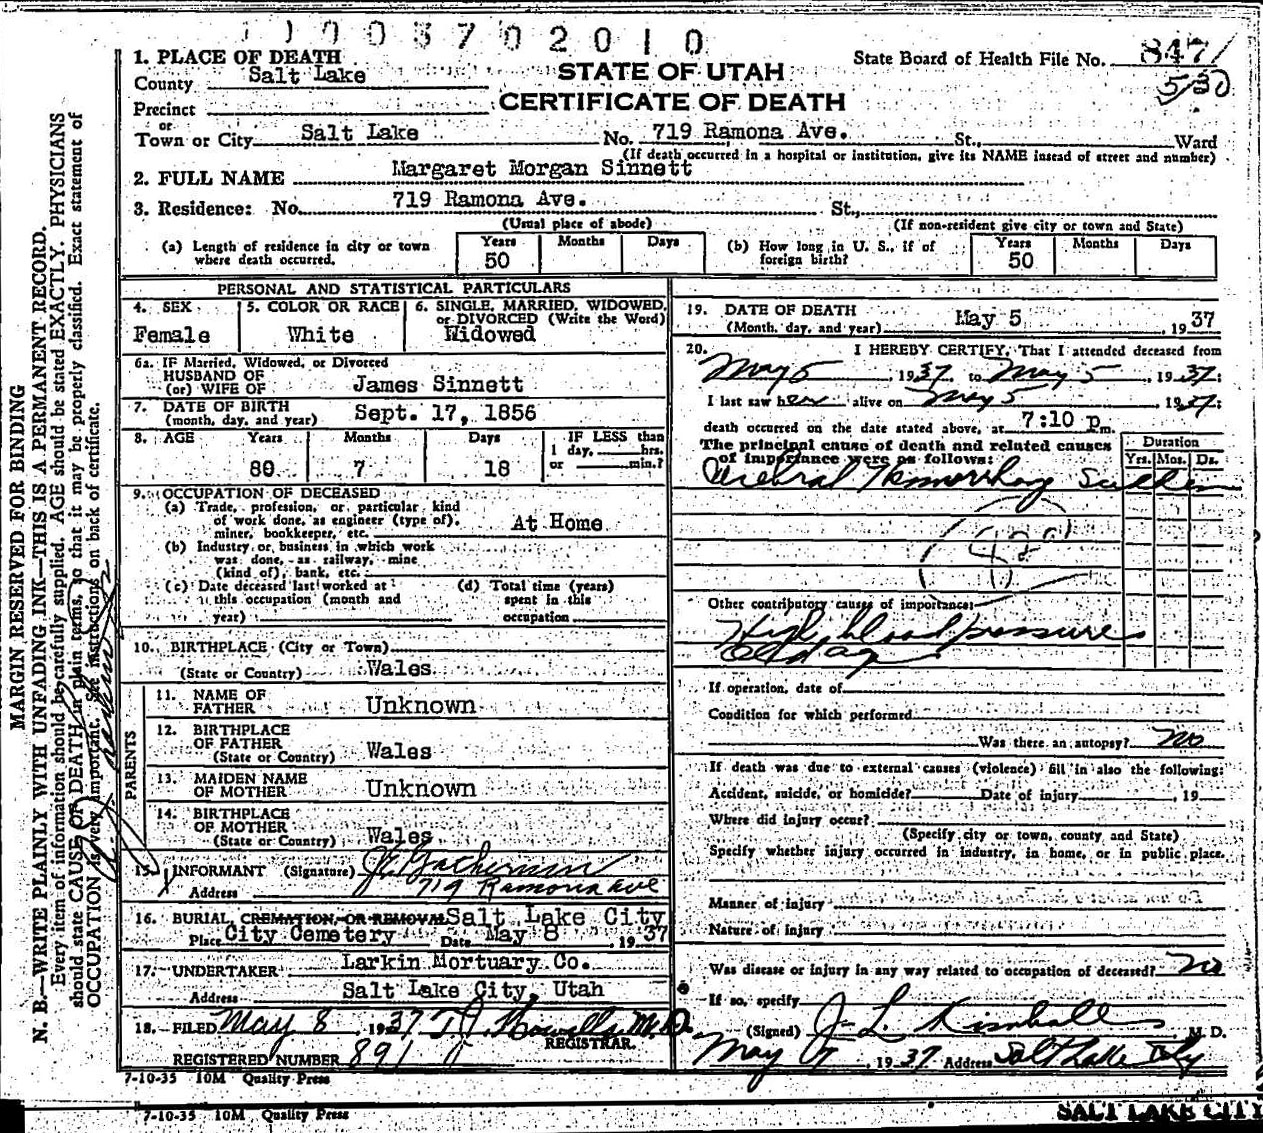 1003702010
1. PLACE OF DEATH
County Salt Lake
STATE OF UTAH
State Board of Health File No. 847
530
Precinct
CERTIFICATE OF DEATH
or
Town or City Salt Lake No. 719 Ramona Ave. St., Ward
(If death occurred in a hospital or institution, give its NAME instead of street and number)
2. FULL NAME Margaret Morgan Sinnett
3. Residence: No. 719 Ramona Ave. St.,
(Usual place of abode) (If non-resident give city or town and State)
(a) Length of residence in city or town where death occurred. Years 50 Months Days
(b) How long in U. S., if of foreign birth? Years 50 Months Days
PERSONAL AND STATISTICAL PARTICULARS
4. SEX Female
5. COLOR OR RACE White
6. SINGLE, MARRIED, WIDOWED, or DIVORCED (Write the Word) Widowed
6a. IF Married, Widowed, or Divorced
HUSBAND OF
(or) WIFE OF James Sinnett
7. DATE OF BIRTH
(month, day, and year) Sept. 17, 1856
8. AGE Years Months Days IF LESS than
80 7 18 1 day, hrs.
or min.?
9. OCCUPATION OF DECEASED
(a) Trade, profession, or particular kind
of work done, as engineer (type of),
miner, bookkeeper, etc. At Home
(b) Industry or business in which work
was done, as railway, mine
(kind of), bank, etc.
(c) Date deceased last worked at
this occupation (month and
year)
(d) Total time (years)
spent in this
occupation
10. BIRTHPLACE (City or Town)
(State or Country) Wales
PARENTS
11. NAME OF
FATHER Unknown
12. BIRTHPLACE
OF FATHER
(State or Country) Wales
13. MAIDEN NAME
OF MOTHER Unknown
14. BIRTHPLACE
OF MOTHER
(State or Country) Wales
15. INFORMANT (Signature)
Address 719 Ramona Ave
16. BURIAL, CREMATION, OR REMOVAL Salt Lake City
Place City Cemetery Date May 8 1937
17. UNDERTAKER Larkin Mortuary Co.
Address Salt Lake City, Utah
18. FILED May 8, 1937 T. J. Howells M.D.
REGISTRAR.
REGISTERED NUMBER 891
7-10-35 10M Quality Press
19. DATE OF DEATH
(Month, day, and year) May 5, 1937
20. I HEREBY CERTIFY, That I attended deceased from
May 5, 1937 to May 5, 1937:
I last saw her alive on May 5 1937
death occurred on the date stated above, at 7:10 p.m.
The principal cause of death and related causes
of importance were as follows:
Duration
Yrs. Mos. Ds.
Cerebral Hemorrhage Sudden
Other contributory causes of importance:
High blood pressure
Old age
If operation, date of
Condition for which performed
Was there an autopsy? no
If death was due to external causes (violence) fill in also the following:
Accident, suicide, or homicide? Date of injury, 19
Where did injury occur?
(Specify city or town, county and State)
Specify whether injury occurred in industry, in home, or in public place.
Manner of injury
Nature of injury
Was disease or injury in any way related to occupation of deceased? no
If so, specify
(Signed) J. L. Kimball M. D.
May 1937 Address Salt Lake City
MARGIN RESERVED FOR BINDING
N. B.—WRITE PLAINLY WITH UNFADING INK—THIS IS A PERMANENT RECORD.
Every item of information should be carefully supplied. AGE should be stated EXACTLY. PHYSICIANS
should state CAUSE OF DEATH in plain terms, so that it may be properly classified. Exact statement of
OCCUPATION is very important. See instructions on back of certificate.
7-10-35 10M Quality Press
SALT LAKE CITY